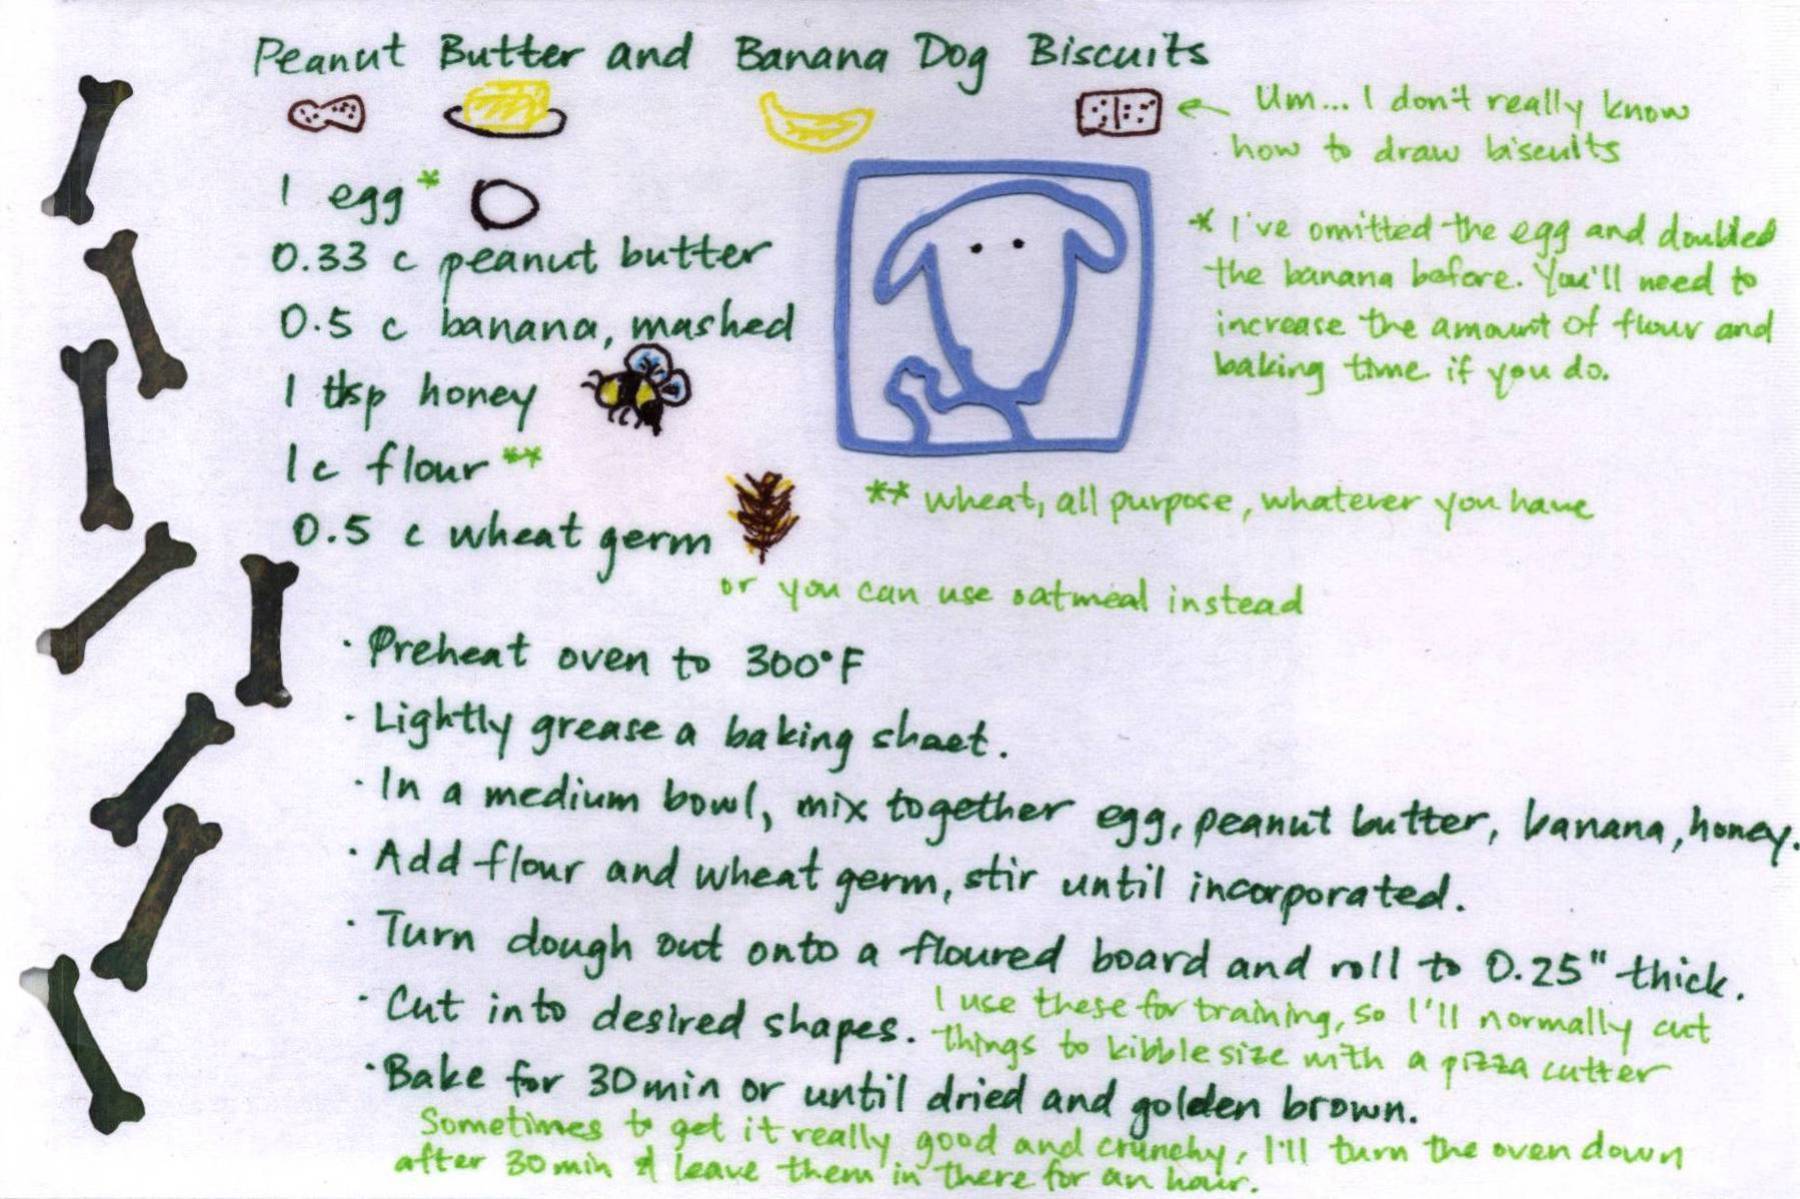 Peanut Butter and Banana Dog Biscuits
← Um... I don't really know
how to draw biscuits
1 egg*
0.33 c peanut butter
0.5 c banana, mashed
1 tbsp honey
1 c flour**
0.5 c wheat germ
or you can use oatmeal instead
* I've omitted the egg and doubled
the banana before. You'll need to
increase the amount of flour and
baking time if you do.
** wheat, all purpose, whatever you have
· Preheat oven to 300°F
· Lightly grease a baking sheet.
· In a medium bowl, mix together egg, peanut butter, banana, honey.
· Add flour and wheat germ, stir until incorporated.
· Turn dough out onto a floured board and roll to 0.25" thick.
· Cut into desired shapes. I use these for training, so I'll normally cut
things to kibble size with a pizza cutter
· Bake for 30 min or until dried and golden brown.
Sometimes to get it really good and crunchy, I'll turn the oven down
after 30 min & leave them in there for an hour.